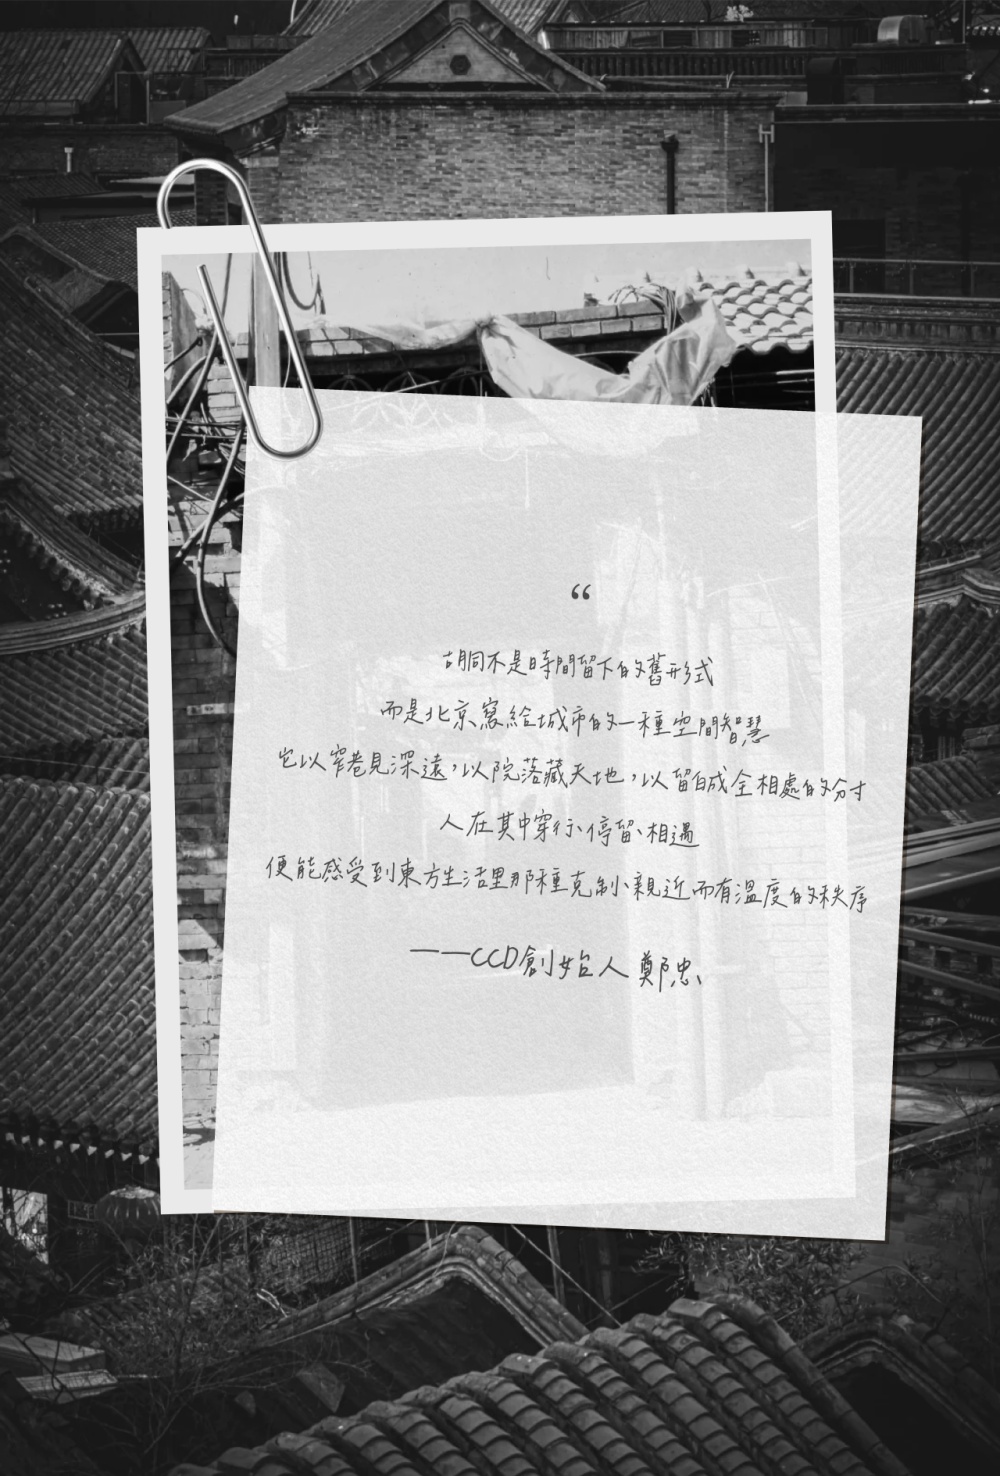 “
胡同不是時間留下的舊形式
而是北京寫給城市的一種空間智慧
它以窄巷見深遠，以院落藏天地，以留白成全相處的分寸
人在其中穿行、停留、相遇
便能感受到東方生活里那種克制、親近而有溫度的秩序
——CCD創始人 鄭忠